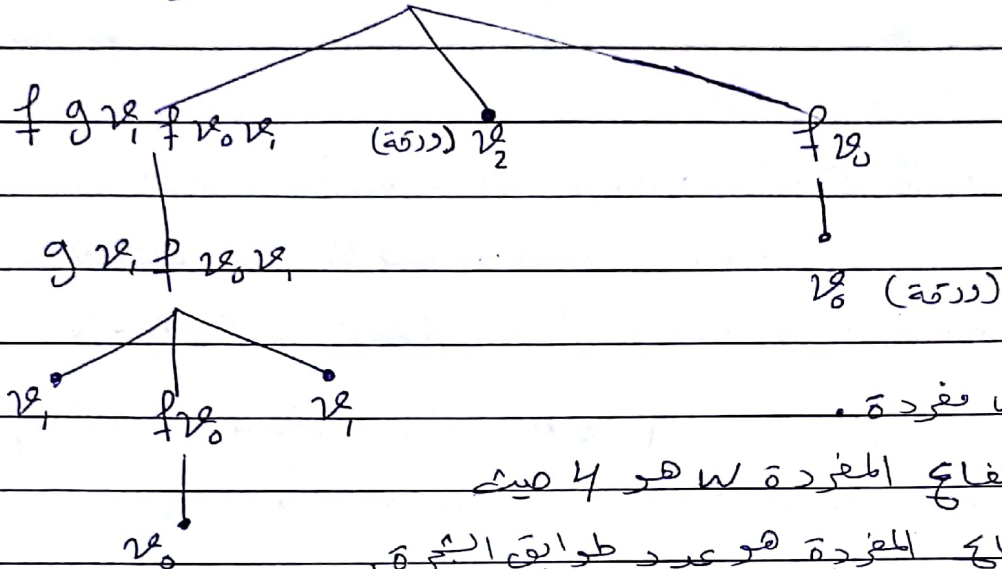 f g v₁ f v₀ v₁ (ورقة) v₂ f v₀
g v₁ f v₀ v₁
v₀ (ورقة)
v₁ f v₀ v₁
مفردة .
المفردة w هو 4 حيث
v₀
المفردة هو عدد طوابق الشجرة